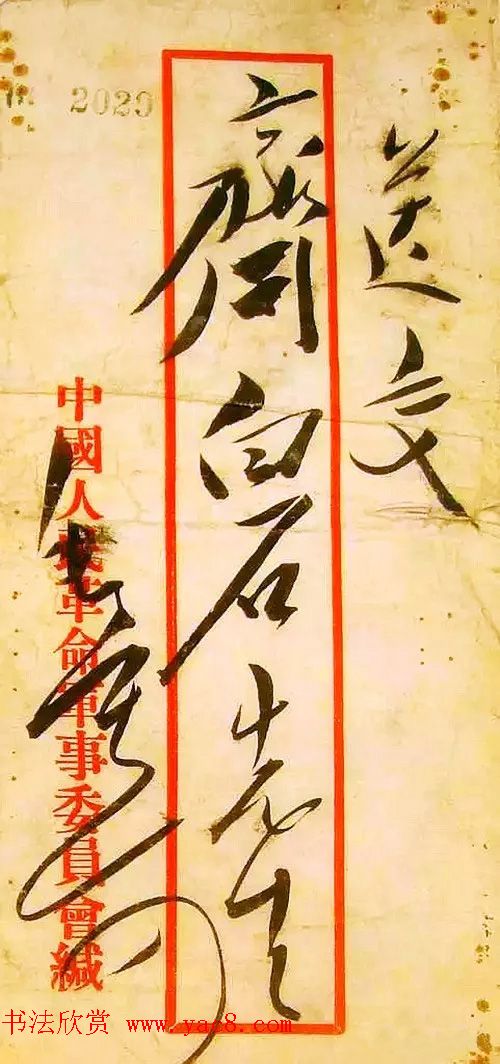 送交
齊白石先生
中國人民革命軍事委員會緘
书法欣赏 www.yac8.com